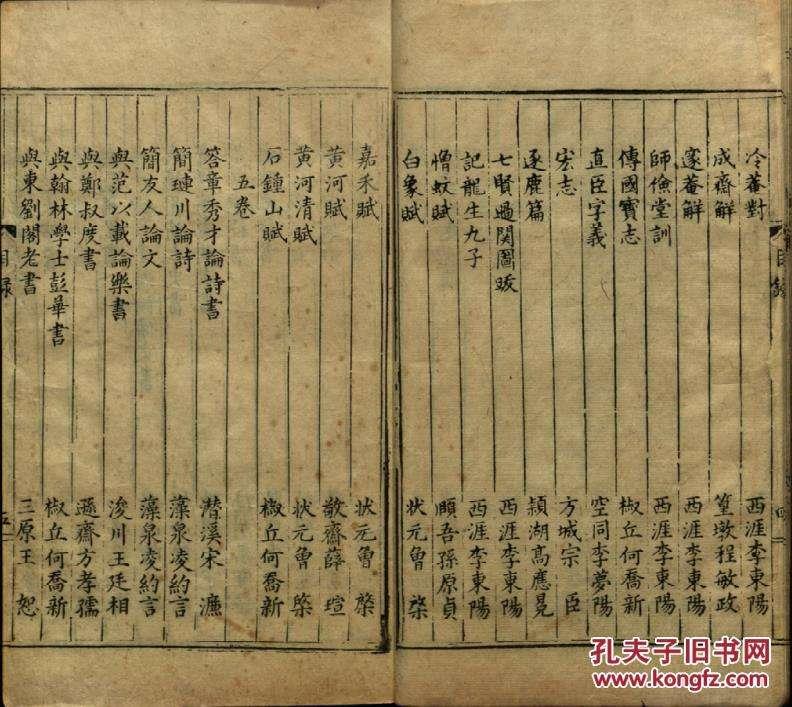 冷菴對 西涯李東陽
成齋觧 篁墩程敏政
邃菴觧 西涯李東陽
師儉堂訓 西涯李東陽
傳國寳志 椒丘何喬新
直臣字義 空同李夢陽
宏志 方城宗臣
逐鹿篇 頴湖高應冕
七賢過関圖跋 西涯李東陽
記龍生九子 西涯李東陽
憎蚊賦 頥吾孫原貞
白象賦 状元曾棨
目錄
四
嘉禾賦 状元曾棨
黄河賦 敬齋薛瑄
黄河清賦 状元曾棨
石鐘山賦 椒丘何喬新
五卷
答章秀才論詩書 潛溪宋濂
簡㻞川論詩 藻泉凌約言
簡友人論文 藻泉凌約言
與范以載論樂書 浚川王廷相
與鄭叔度書 遜齋方孝孺
與翰林學士彭華書 椒丘何喬新
與東劉閣老書 三原王恕
目録
五
孔夫子旧书网
www.kongfz.com